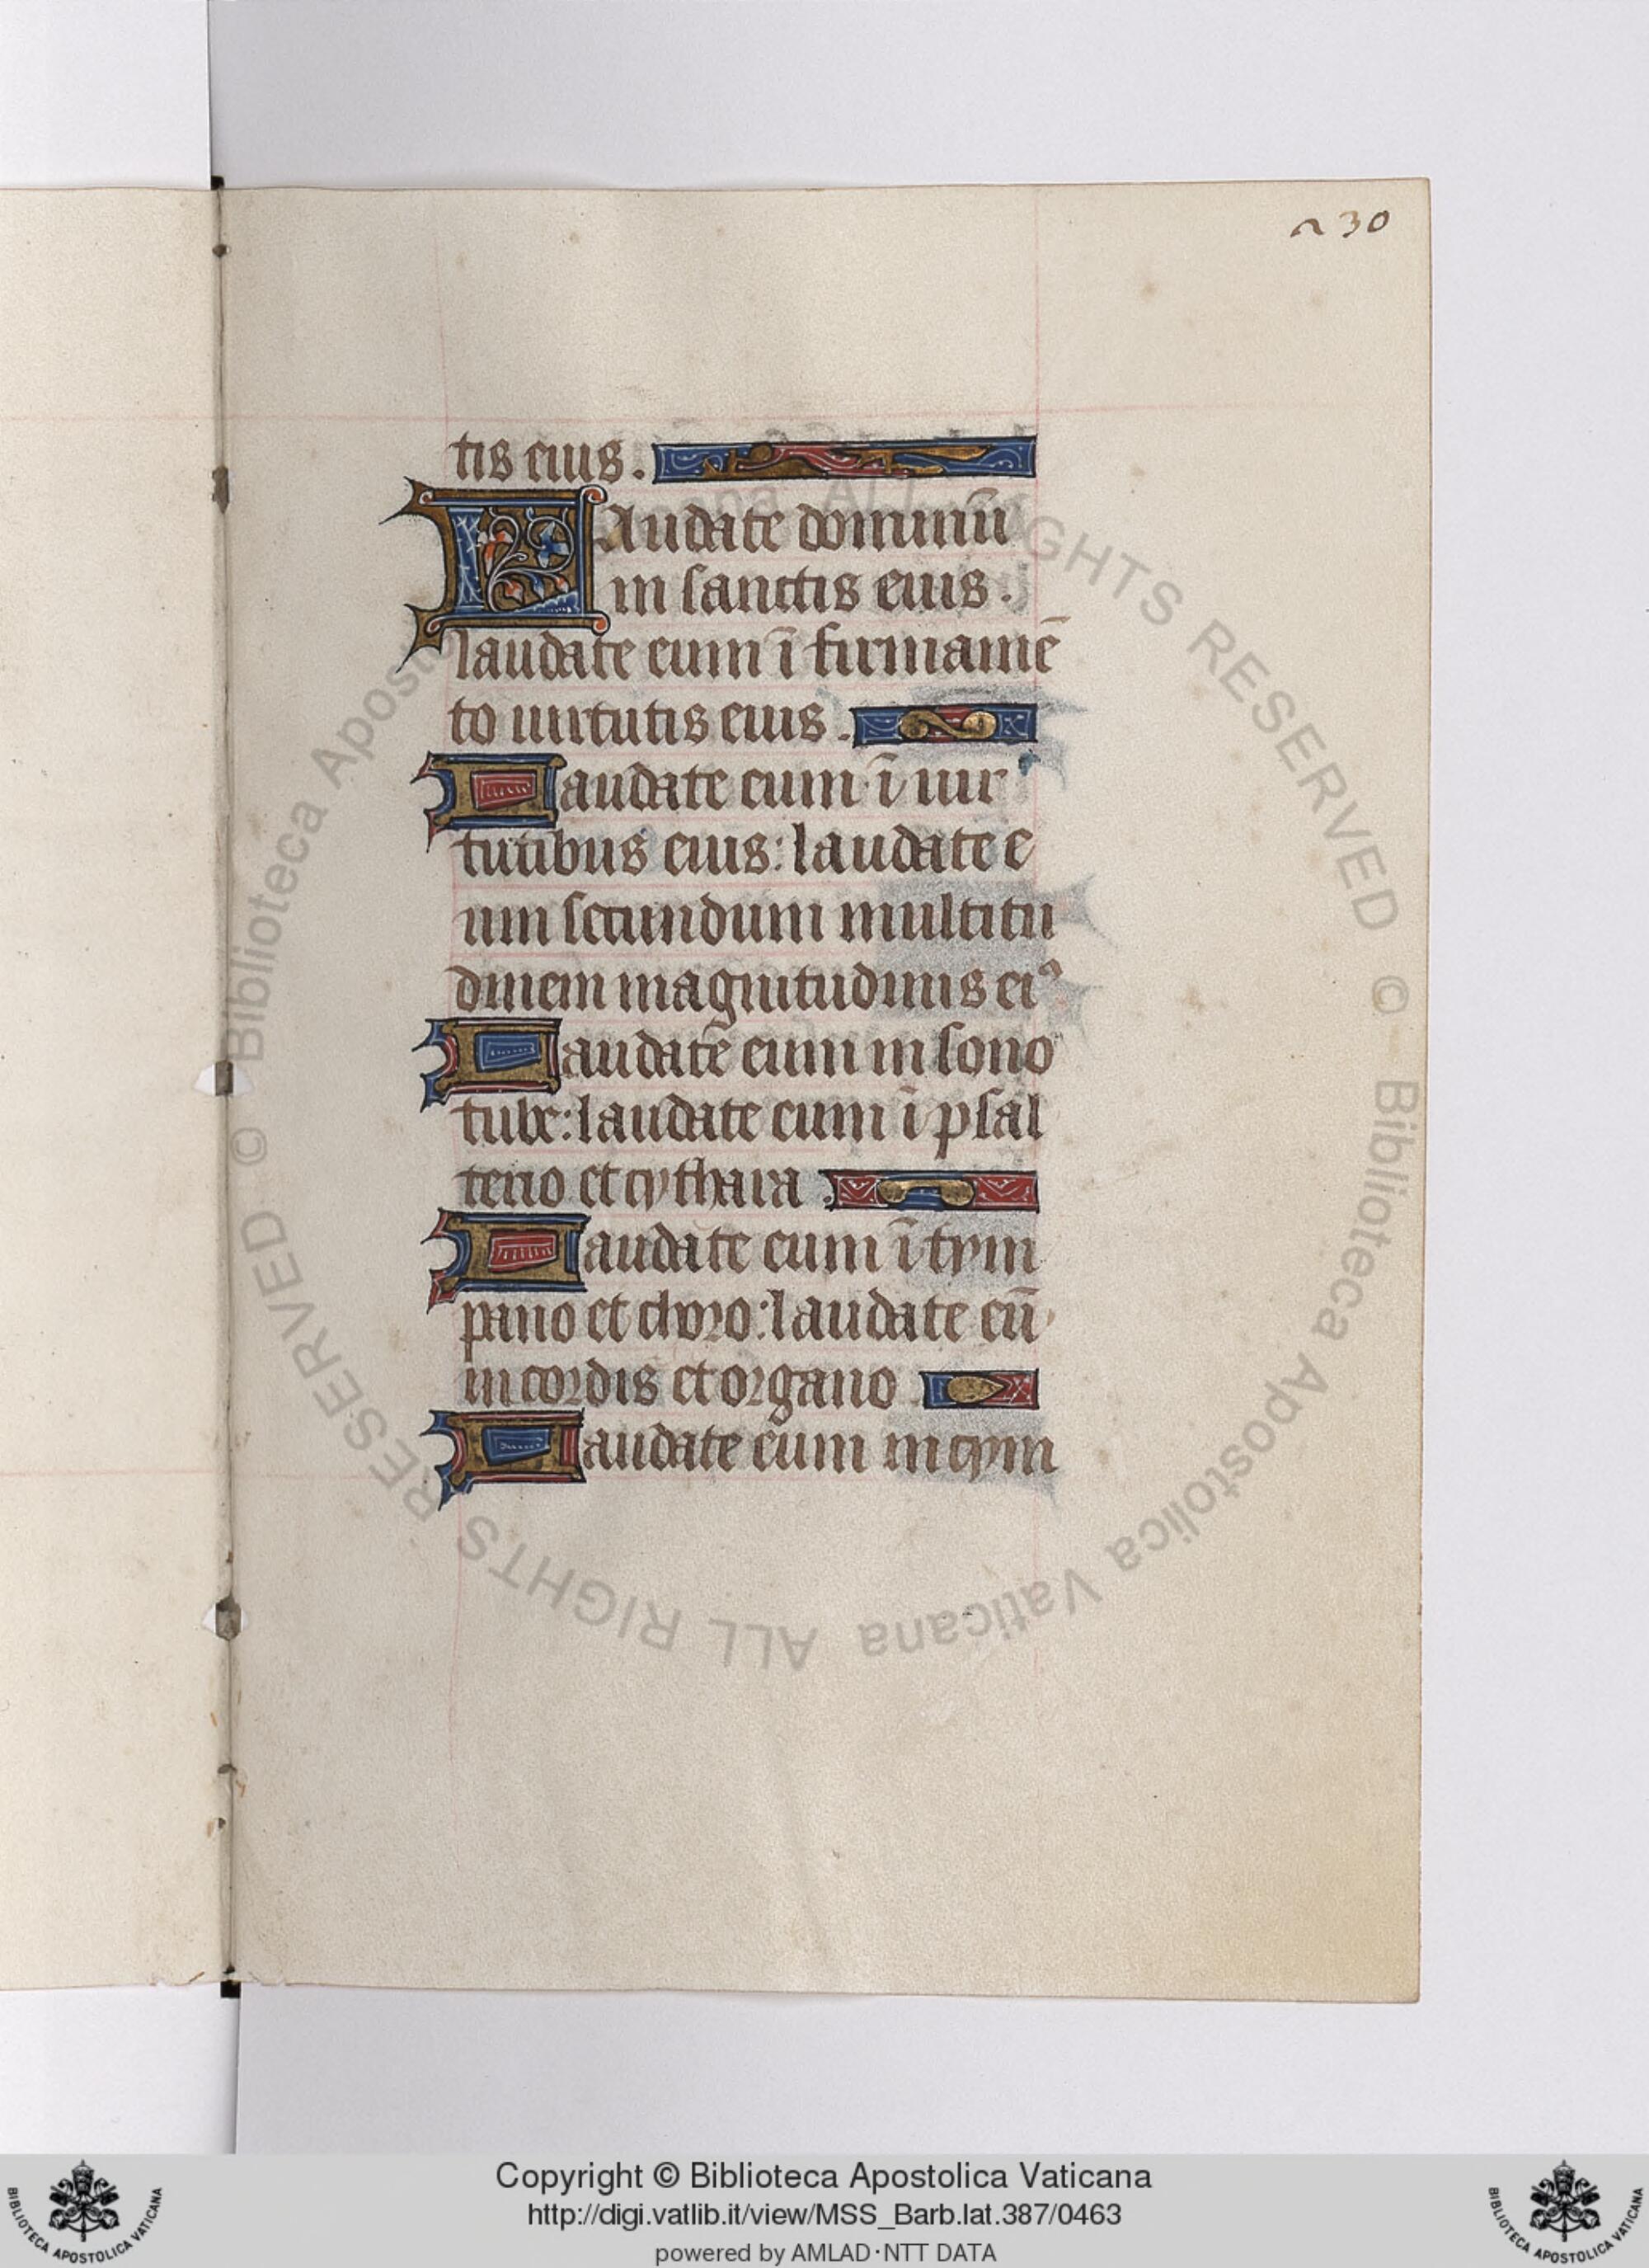 230
tis eius.
LAudate dominū
in sanctis eius.
laudate eum ī firmamē
to uirtutis eius.
Laudate eum ī uir
tutibus eius: laudate e
um secundum multitu
dinem magnitudinis eiꝰ
Laudate eum in sono
tube: laudate eum ī psal
terio et cythara.
Laudate eum ī tym
pano et choro: laudate eū
in cordis et organo.
Laudate eum in cym
© Biblioteca Apostolica Vaticana ALL RIGHTS RESERVED © Biblioteca Apostolica Vaticana ALL RIGHTS RESERVED
Copyright © Biblioteca Apostolica Vaticana
http://digi.vatlib.it/view/MSS_Barb.lat.387/0463
powered by AMLAD·NTT DATA
BIBLIOTECA APOSTOLICA VATICANA
BIBLIOTECA APOSTOLICA VATICANA